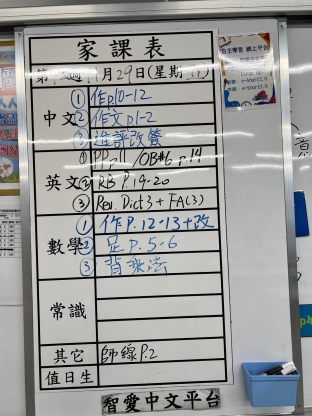 家課表
月29日(星期
中文
① 作p10-12
② 作文p1-2
③ 進評改簽
英文
① PP.11 /OB#6 p.14
② RB P.19-20
③ Rev. Dict 3 + FA(3)
數學
① 作P.12-13+改
② 足P.5-6
③ 背乘法
常識
其它
師線P.2
值日生
智愛中文平台
自主學習 網上平台